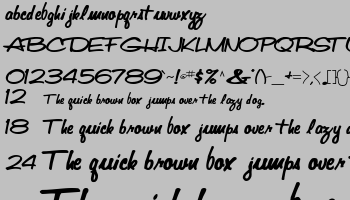 abcdefghijklmnopqrstuvwxyz
ABCDEFGHIJKLMNOPQRSTU
0123456789`~!@#$%^&*()-_+=>,<.[]{}
12 The quick brown box jumps over the lazy dog.
18 The quick brown box jumps over the lazy
24 The quick brown box jumps over
The quick brown box